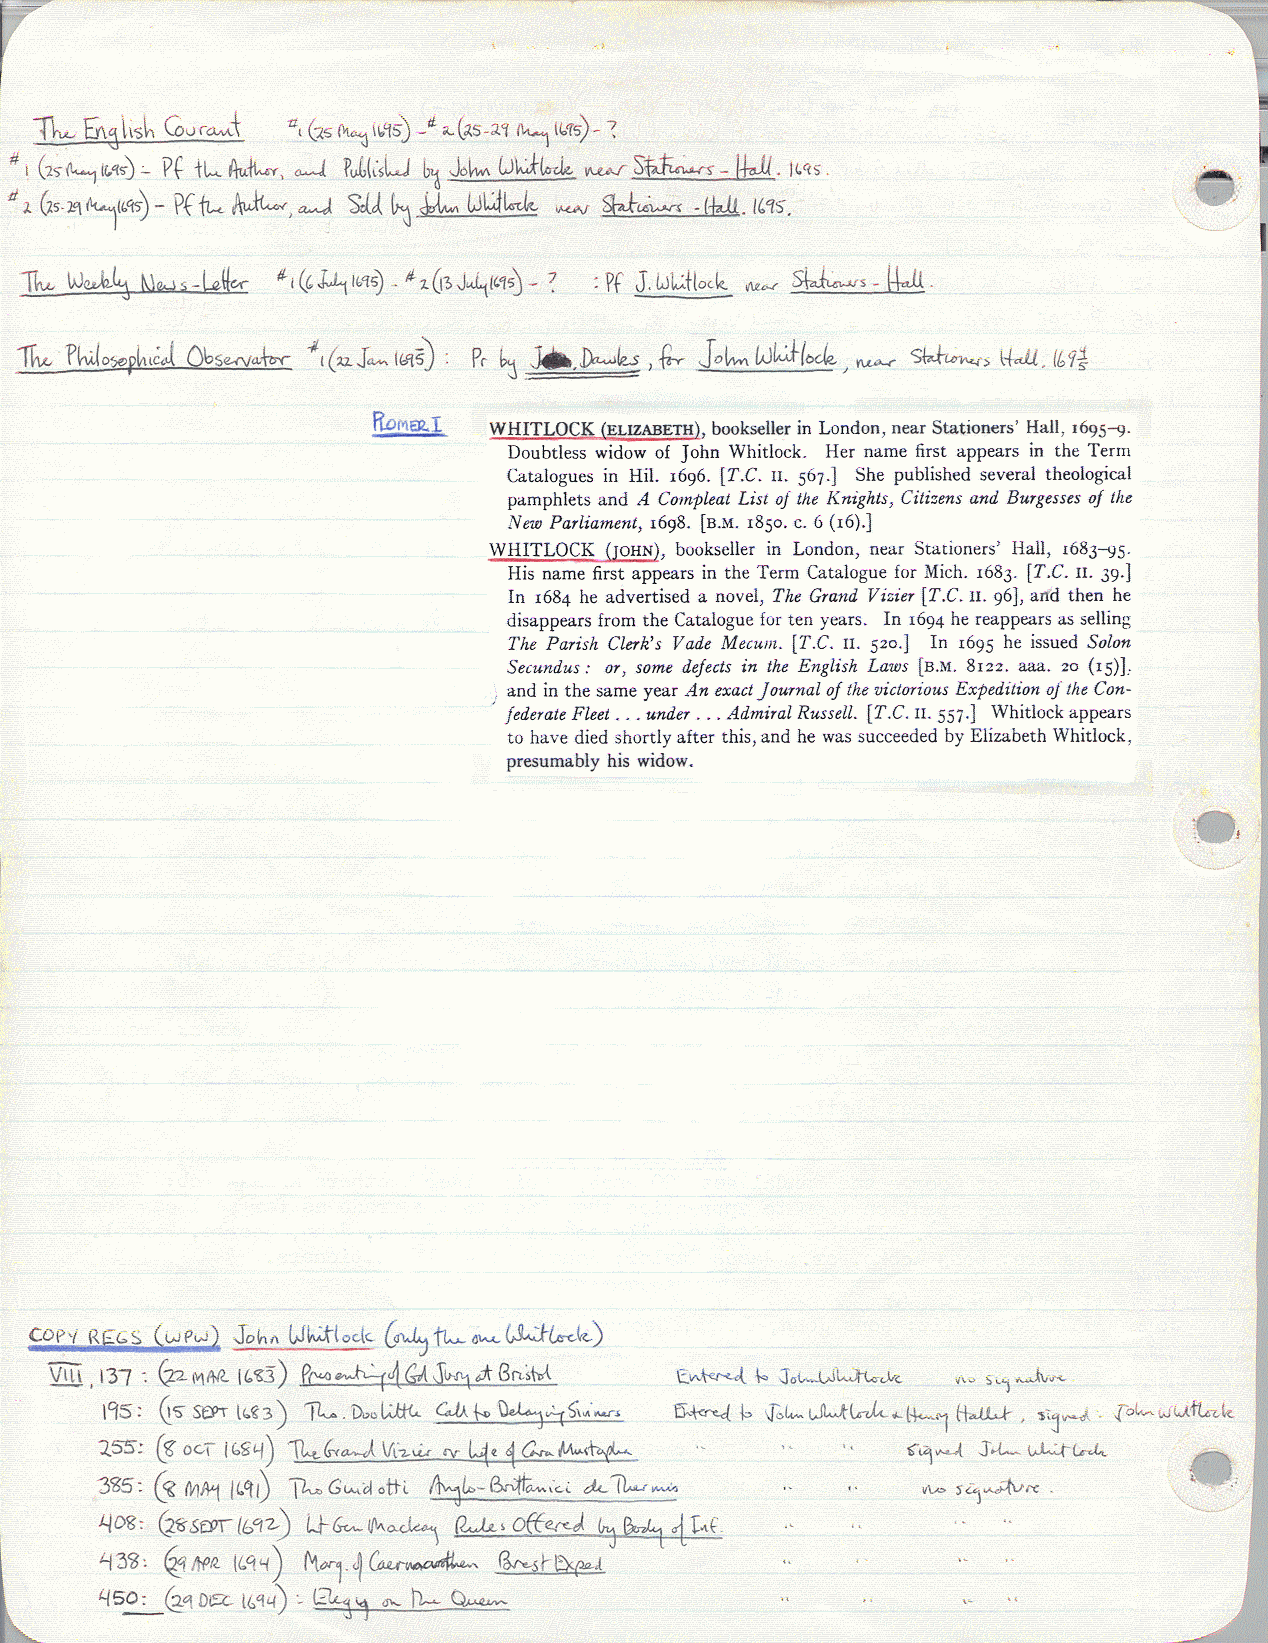 The English Courant #1 (25 May 1695) - #2 (25-29 May 1695) - ?
#1 (25 May 1695) - Pf the Author, and Published by John Whitlock near Stationers-Hall. 1695.
#2 (25-29 May 1695) - Pf the Author, and Sold by John Whitlock near Stationers-Hall. 1695.
The Weekly News-Letter #1 (6 July 1695) - #2 (13 July 1695) - ? : Pf J. Whitlock near Stationers-Hall.
The Philosophical Observator #1 (22 Jan 1695) : Pr by Dawks, for John Whitlock, near Stationers Hall. 169⅘
PLOMER I
WHITLOCK (ELIZABETH), bookseller in London, near Stationers' Hall, 1695-9.
Doubtless widow of John Whitlock. Her name first appears in the Term
Catalogues in Hil. 1696. [T.C. II. 567.] She published several theological
pamphlets and A Compleat List of the Knights, Citizens and Burgesses of the
New Parliament, 1698. [B.M. 1850. c. 6 (16).]
WHITLOCK (JOHN), bookseller in London, near Stationers' Hall, 1683-95.
His name first appears in the Term Catalogue for Mich. 1683. [T.C. II. 39.]
In 1684 he advertised a novel, The Grand Vizier [T.C. II. 96], and then he
disappears from the Catalogue for ten years. In 1694 he reappears as selling
The Parish Clerk's Vade Mecum. [T.C. II. 520.] In 1695 he issued Solon
Secundus: or, some defects in the English Laws [B.M. 8122. aaa. 20 (15)].
and in the same year An exact Journal of the victorious Expedition of the Con-
federate Fleet . . . under . . . Admiral Russell. [T.C. II. 557.] Whitlock appears
to have died shortly after this, and he was succeeded by Elizabeth Whitlock,
presumably his widow.
COPY REGS (WPW) John Whitlock (only the one Whitlock)
VIII, 137 : (22 MAR 1683) Presenting of Gd Jury at Bristol Entered to John Whitlock no signature
195: (15 SEPT 1683) Tho. Doolittle Call to Delaying Sinners Entered to John Whitlock & Henry Hallet, signed: John Whitlock
255: (8 OCT 1684) The Grand Vizier or Life of Cara Mustapha " " " signed John Whitlock
385: (8 MAY 1691) Tho Guidotti Anglo-Brittanici de Thermis " " no signature.
408: (28 SEPT 1692) Lt Gen Mackay Rules Offered by Body of Inf. " " " "
438: (29 APR 1694) Marq. of Caermarthen Brest Exped " " " "
450: (29 DEC 1694) : Elegy on the Queen " " " "